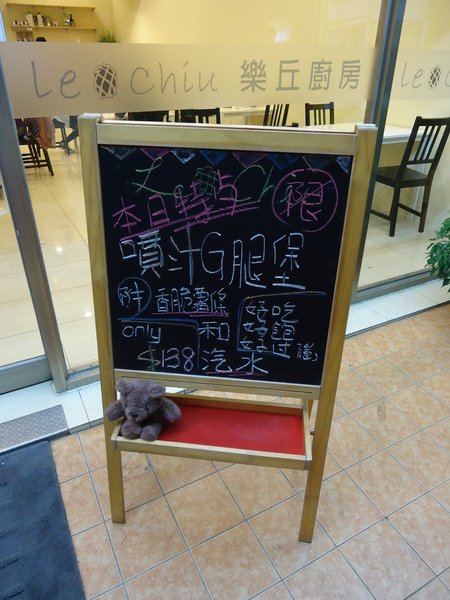 Le Chiu 樂丘廚房
Le
本日特点 限
噴汁G腿堡
附 香脆薯條
only 和
$138 汽水
好吃
好飽
好